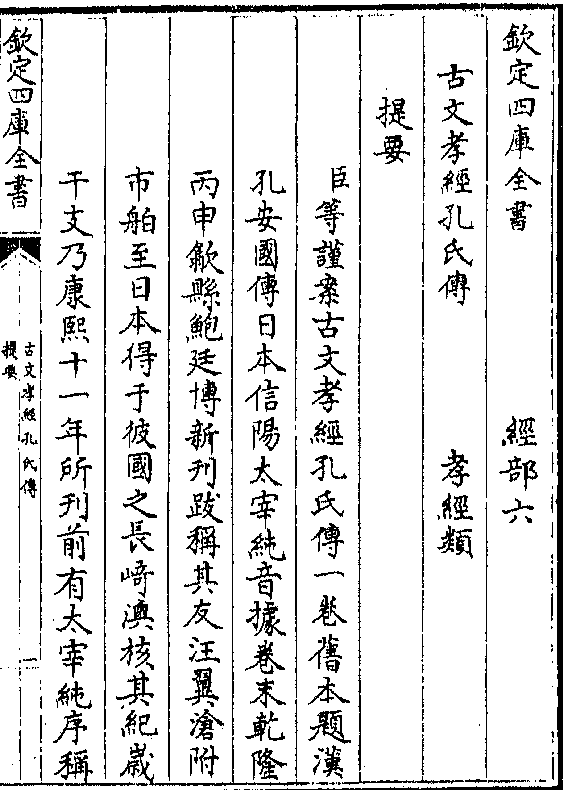 欽定四庫全書　經部六
古文孝經孔氏傳　孝經類
提要
臣等謹案古文孝經孔氏傳一卷舊本題漢
孔安國傳日本信陽太宰純音據卷末乾隆
丙申歙縣鮑廷博新刊跋稱其友汪翼滄附
市舶至日本得于彼國之長﨑澳核其紀歲
干支乃康熙十一年所刊前有太宰純序稱
欽定四庫全書
古文孝經孔氏傳
提要
一